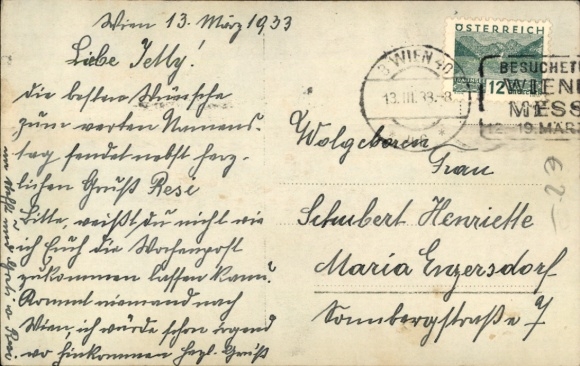 Wien 13. März 1933
Liebe Jetty!
die besten Wünsche
zum werten Namens-
tag sendet nebst herz-
lichen Gruß Rese
Bitte, weißt du nicht wie
ich Euch die Wochenpost
zukommen lassen kann.
Kommt niemand nach
Wien, ich würde schon irgend
wo hinkommen Herzl. Grüße
u. Rese
ÖSTERREICH
12
WIEN 40
13.III.33.-8
BESUCHET
WIENE
MESS
12. 19. MÄR
Wolgeboren
Frau
Schubert Henriette
Maria Enzersdorf
Sonnbergstraße 7